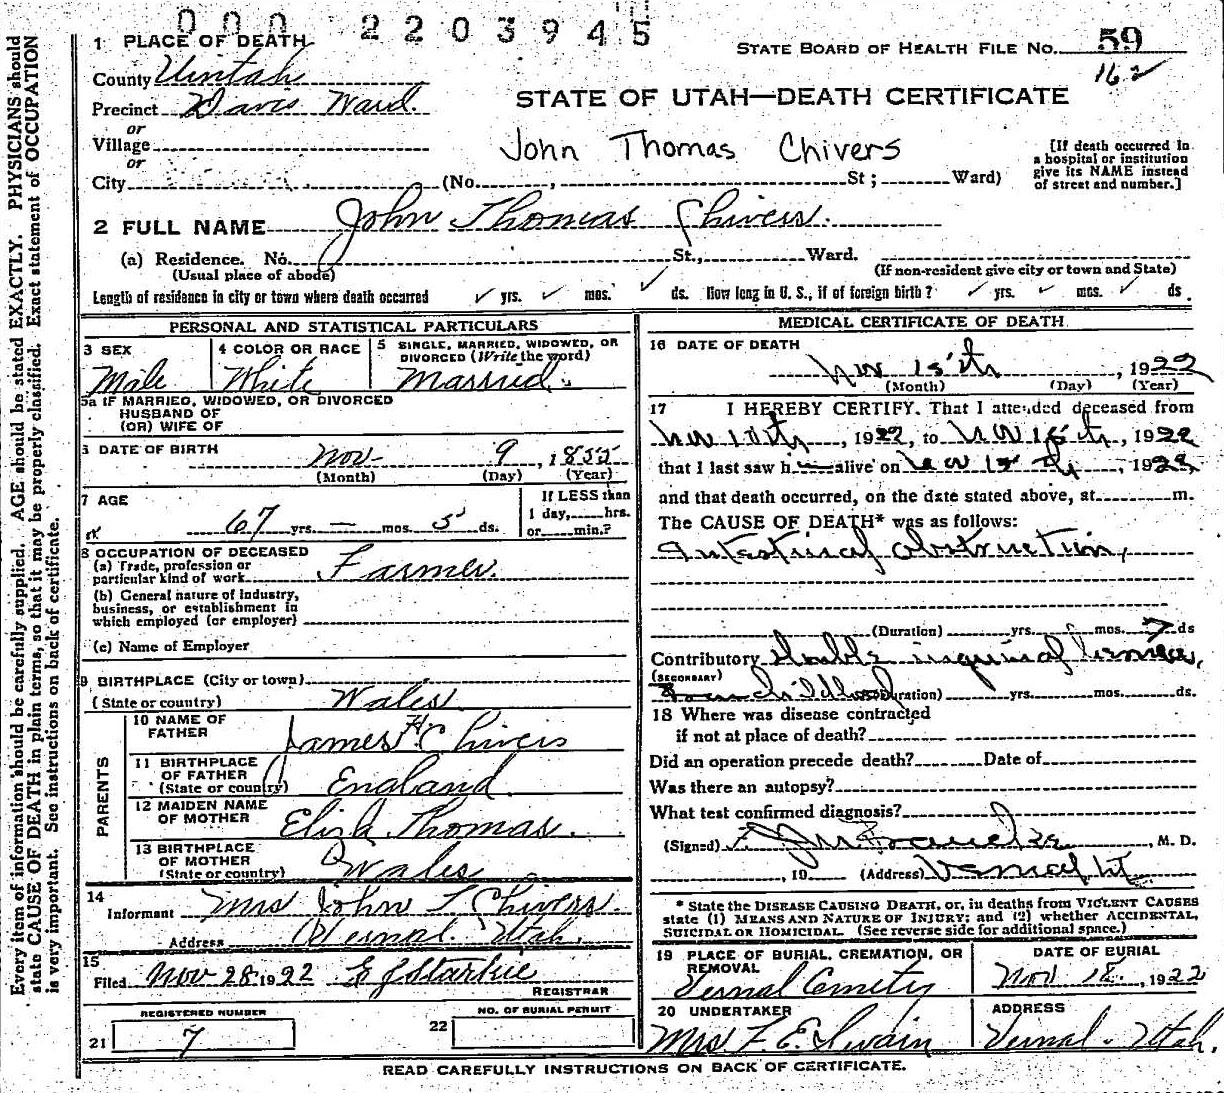 0 0 0 2 2 0 3 9 4 5
STATE BOARD OF HEALTH FILE NO. 59
162
1 PLACE OF DEATH
County Uintah
Precinct Davis Ward.
or
Village
or
City (No. , St ; Ward)
STATE OF UTAH—DEATH CERTIFICATE
John Thomas Chivers
[If death occurred in a hospital or institution give its NAME instead of street and number.]
2 FULL NAME John Thomas Chivers.
(a) Residence. No. St., Ward.
(Usual place of abode) (If non-resident give city or town and State)
Length of residence in city or town where death occurred ✓ yrs. ✓ mos. ✓ ds. How long in U. S., if of foreign birth? ✓ yrs. ✓ mos. ✓ ds.
PERSONAL AND STATISTICAL PARTICULARS
3 SEX
Male
4 COLOR OR RACE
White
5 SINGLE, MARRIED, WIDOWED, OR
DIVORCED (Write the word)
Married.
5a IF MARRIED, WIDOWED, OR DIVORCED
HUSBAND OF
(OR) WIFE OF
6 DATE OF BIRTH Nov 9, 1855
(Month) (Day) (Year)
7 AGE
67 yrs. — mos. 5 ds.
If LESS than
1 day, hrs.
or min.?
8 OCCUPATION OF DECEASED
(a) Trade, profession or
particular kind of work Farmer.
(b) General nature of industry,
business, or establishment in
which employed (or employer)
(c) Name of Employer
9 BIRTHPLACE (City or town)
(State or country) Wales.
PARENTS
10 NAME OF
FATHER James H. Chivers
11 BIRTHPLACE
OF FATHER
(State or country) England.
12 MAIDEN NAME
OF MOTHER Eliza Thomas.
13 BIRTHPLACE
OF MOTHER
(State or country) Wales
14
Informant Mrs John T Chivers.
Address Vernal. Utah.
15
Filed Nov 28 1922 E J Starkie
REGISTRAR
REGISTERED NUMBER
21 7
NO. OF BURIAL PERMIT
22
MEDICAL CERTIFICATE OF DEATH
16 DATE OF DEATH
Nov 15th, 1922
(Month) (Day) (Year)
17 I HEREBY CERTIFY. That I attended deceased from
Nov 10th, 1922, to Nov 15th, 1922
that I last saw h alive on Nov 15th, 1922,
and that death occurred, on the date stated above, at m.
The CAUSE OF DEATH* was as follows:
Intestinal obstruction,
(Duration) yrs. mos. 7 ds
Contributory Double inguinal hernia,
(SECONDARY)
from childhood (Duration) yrs. mos. ds.
18 Where was disease contracted
if not at place of death?
Did an operation precede death? Date of
Was there an autopsy?
What test confirmed diagnosis?
(Signed) , M. D.
, 19 (Address) Vernal Ut
* State the DISEASE CAUSING DEATH, or, in deaths from VIOLENT CAUSES
state (1) MEANS AND NATURE OF INJURY; and (2) whether ACCIDENTAL,
SUICIDAL OR HOMICIDAL. (See reverse side for additional space.)
19 PLACE OF BURIAL, CREMATION, OR
REMOVAL
Vernal Cemetry
DATE OF BURIAL
Nov 18, 1922
20 UNDERTAKER
Mrs F. E. Swain
ADDRESS
Vernal. Utah.
READ CAREFULLY INSTRUCTIONS ON BACK OF CERTIFICATE.
Every item of information should be carefully supplied. AGE should be stated EXACTLY. PHYSICIANS should
state CAUSE OF DEATH in plain terms, so that it may be properly classified. Exact statement of OCCUPATION
is very important. See instructions on back of certificate.